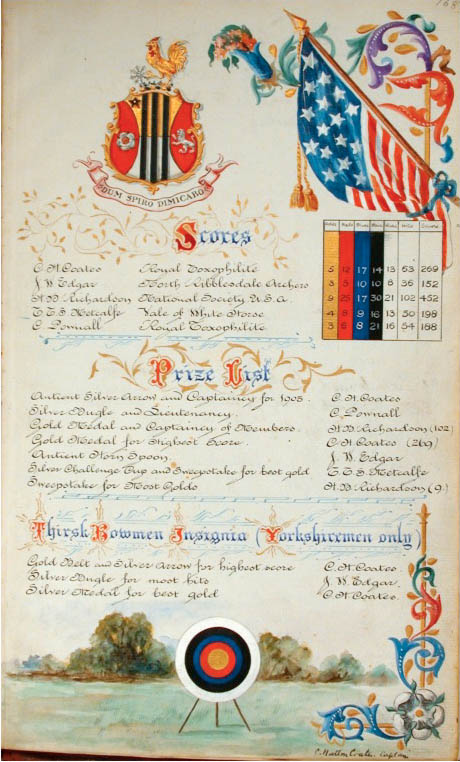 168
DUM SPIRO DIMICABO
Scores
C. H. Coates Royal Toxophilite 5 12 17 14 13 63 269
J. W. Edgar North Ribblesdale Archers 3 5 10 10 8 36 152
H. B. Richardson National Society U.S.A. 9 25 17 30 21 102 452
T. T. S. Metcalfe Vale of White Horse 4 8 9 16 13 50 198
C. Pownall Royal Toxophilite 3 6 8 21 16 54 188
Prize List
Antient Silver Arrow and Captaincy for 1905. C. H. Coates
Silver Bugle and Lieutenancy. C. Pownall
Gold Medal and Captaincy of Numbers. H. B. Richardson (102)
Gold Medal for Highest Score. C. H. Coates (269)
Antient Horn Spoon. J. W. Edgar
Silver Challenge Cup and Sweepstake for best gold T. T. S. Metcalfe
Sweepstake for Most Golds H. B. Richardson (9.)
Thirsk Bowmen Insignia (Yorkshiremen only)
Gold Belt and Silver Arrow for highest score C. H. Coates.
Silver Bugle for most hits J. W. Edgar.
Silver Medal for best gold C. H. Coates.
Captain